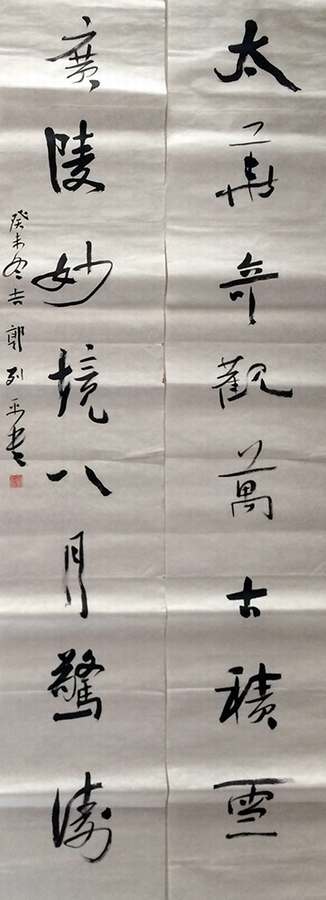 太華奇觀萬古積雪
廣陵妙境八月驚濤
癸未冬吉郭列平書